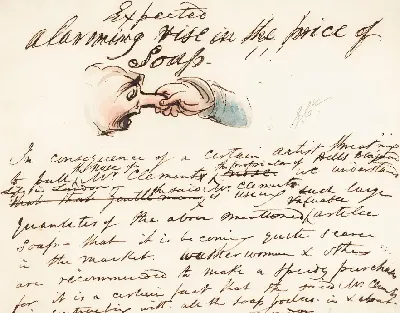 Expected
alarming rise in the price of
Soap. !!
In consequence of a certain artist threat'ng
the Nose of the proprietor of Bells
to pull Mr Clements we understand
London the said Mr Clements
that that is using such large
valuable
quantities of the above mentioned article
Soap - that it is becoming quite scarce
in the market washerwomen & others
are recommended to make a speedy purchase
for it is a certain fact that the said Mr Clements
with all the soap